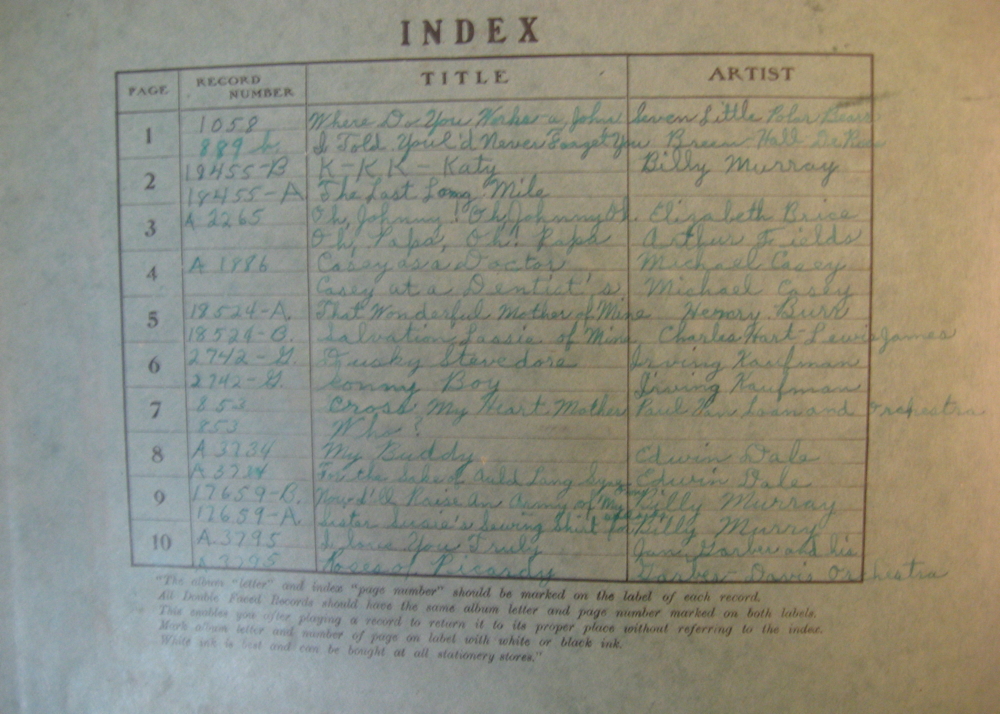 INDEX
PAGE RECORD NUMBER TITLE ARTIST
1 1058 Where Do You Worka, John Seven Little Polar Bears
889 b. I Told You I'd Never Forget You Breen-Hall De
2 18455-B K-K-K-Katy Billy Murray
18455-A The Last Long Mile
3 A 2265 Oh, Johnny! Oh, Johnny Oh. Elizabeth Brice
Oh, Papa, Oh! Papa Arthur Fields
4 A 1886 Casey as a Doctor Michael Casey
Casey at a Dentist's Michael Casey
5 18524-A. That Wonderful Mother of Mine Henry Burr
18524-B. Salvation Lassie of Mine, Charles Hart-Lewis James
6 2742-G. Dusky Stevedore Irving Kaufman
2742-G. Sonny Boy Irving Kaufman
7 853 Cross My Heart Mother Paul Van Loan and Orchestra
853 Who?
8 A 3734 My Buddy Edwin Dale
A 3734 For the Sake of Auld Lang Syne Edwin Dale
9 17659-B. Now I'll Raise An Army of My Own Billy Murray
17659-A Sister Susie's Sewing Shirt Billy Murry
10 A.3795 I Love You Truly Jan Garber and his
A 3795 Roses of Picardy Garber-Davis Orchestra
"The album "letter" and index "page number" should be marked on the label of each record.
All Double Faced Records should have the same album letter and page number marked on both labels.
This enables you after playing a record to return it to its proper place without referring to the index.
Mark album letter and number of page on label with white or black ink.
White ink is best and can be bought at all stationery stores."